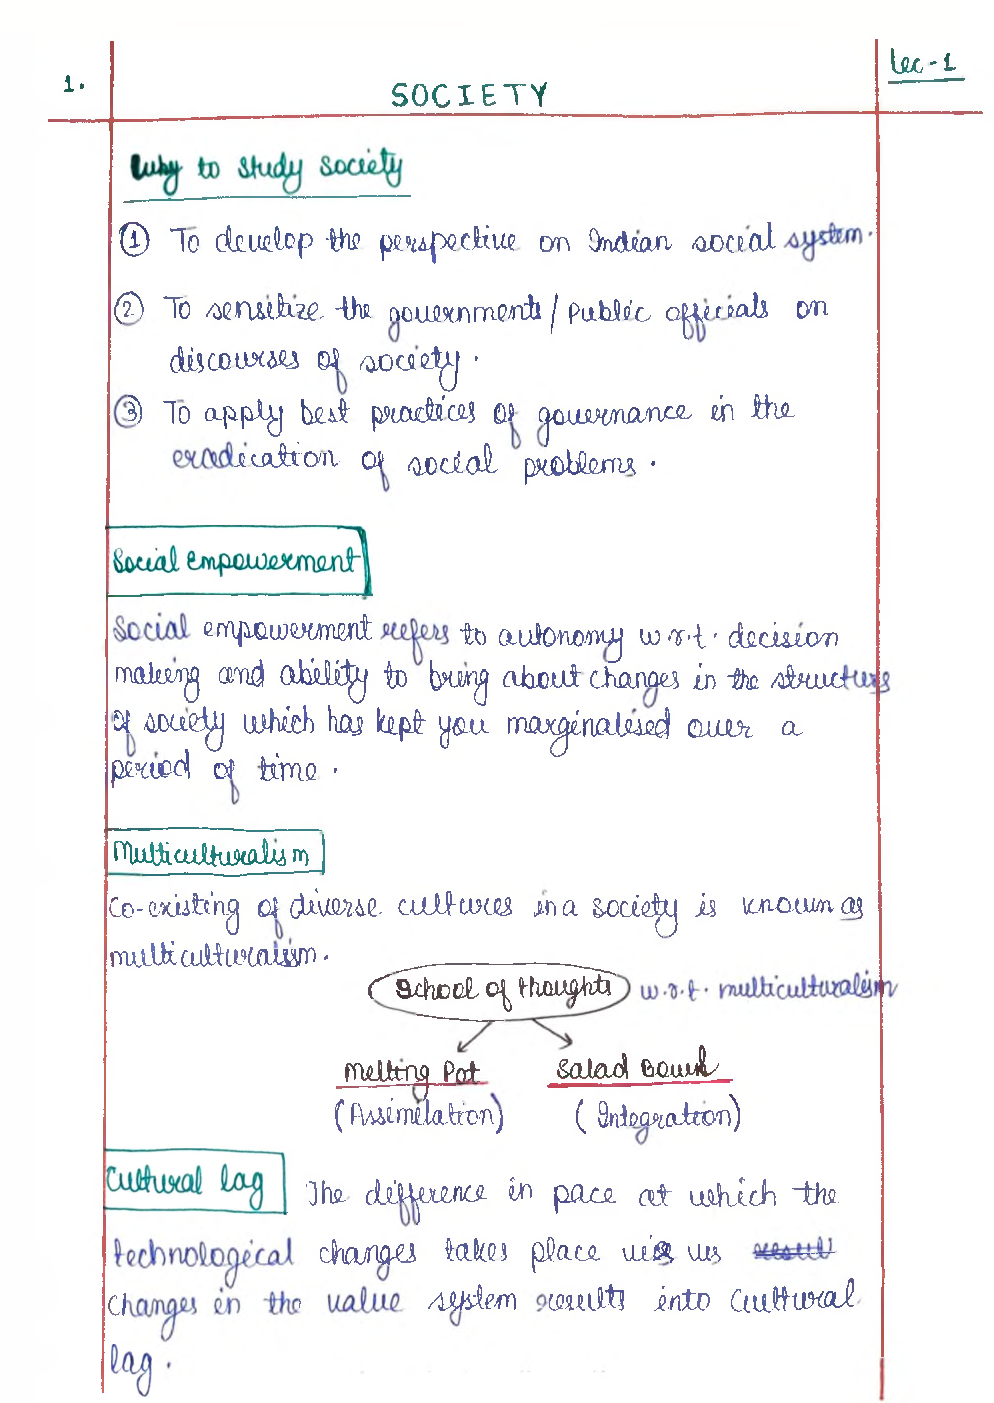 Lec-1
1.
SOCIETY
Why to study society
① To develop the perspective on Indian social system.
② To sensitize the governments/public officials on
discourses of society.
③ To apply best practices of governance in the
eradication of social problems.
Social empowerment
Social empowerment refers to autonomy w.r.t. decision
making and ability to bring about changes in the structures
of society which has kept you marginalised over a
period of time.
Multiculturalism
Co-existing of diverse cultures in a society is known as
multiculturalism.
School of thoughts w.r.t. multiculturalism
Melting Pot Salad Bowl
(Assimilation) (Integration)
Cultural lag The difference in pace at which the
technological changes takes place vis vis
changes in the value system results into cultural
lag.